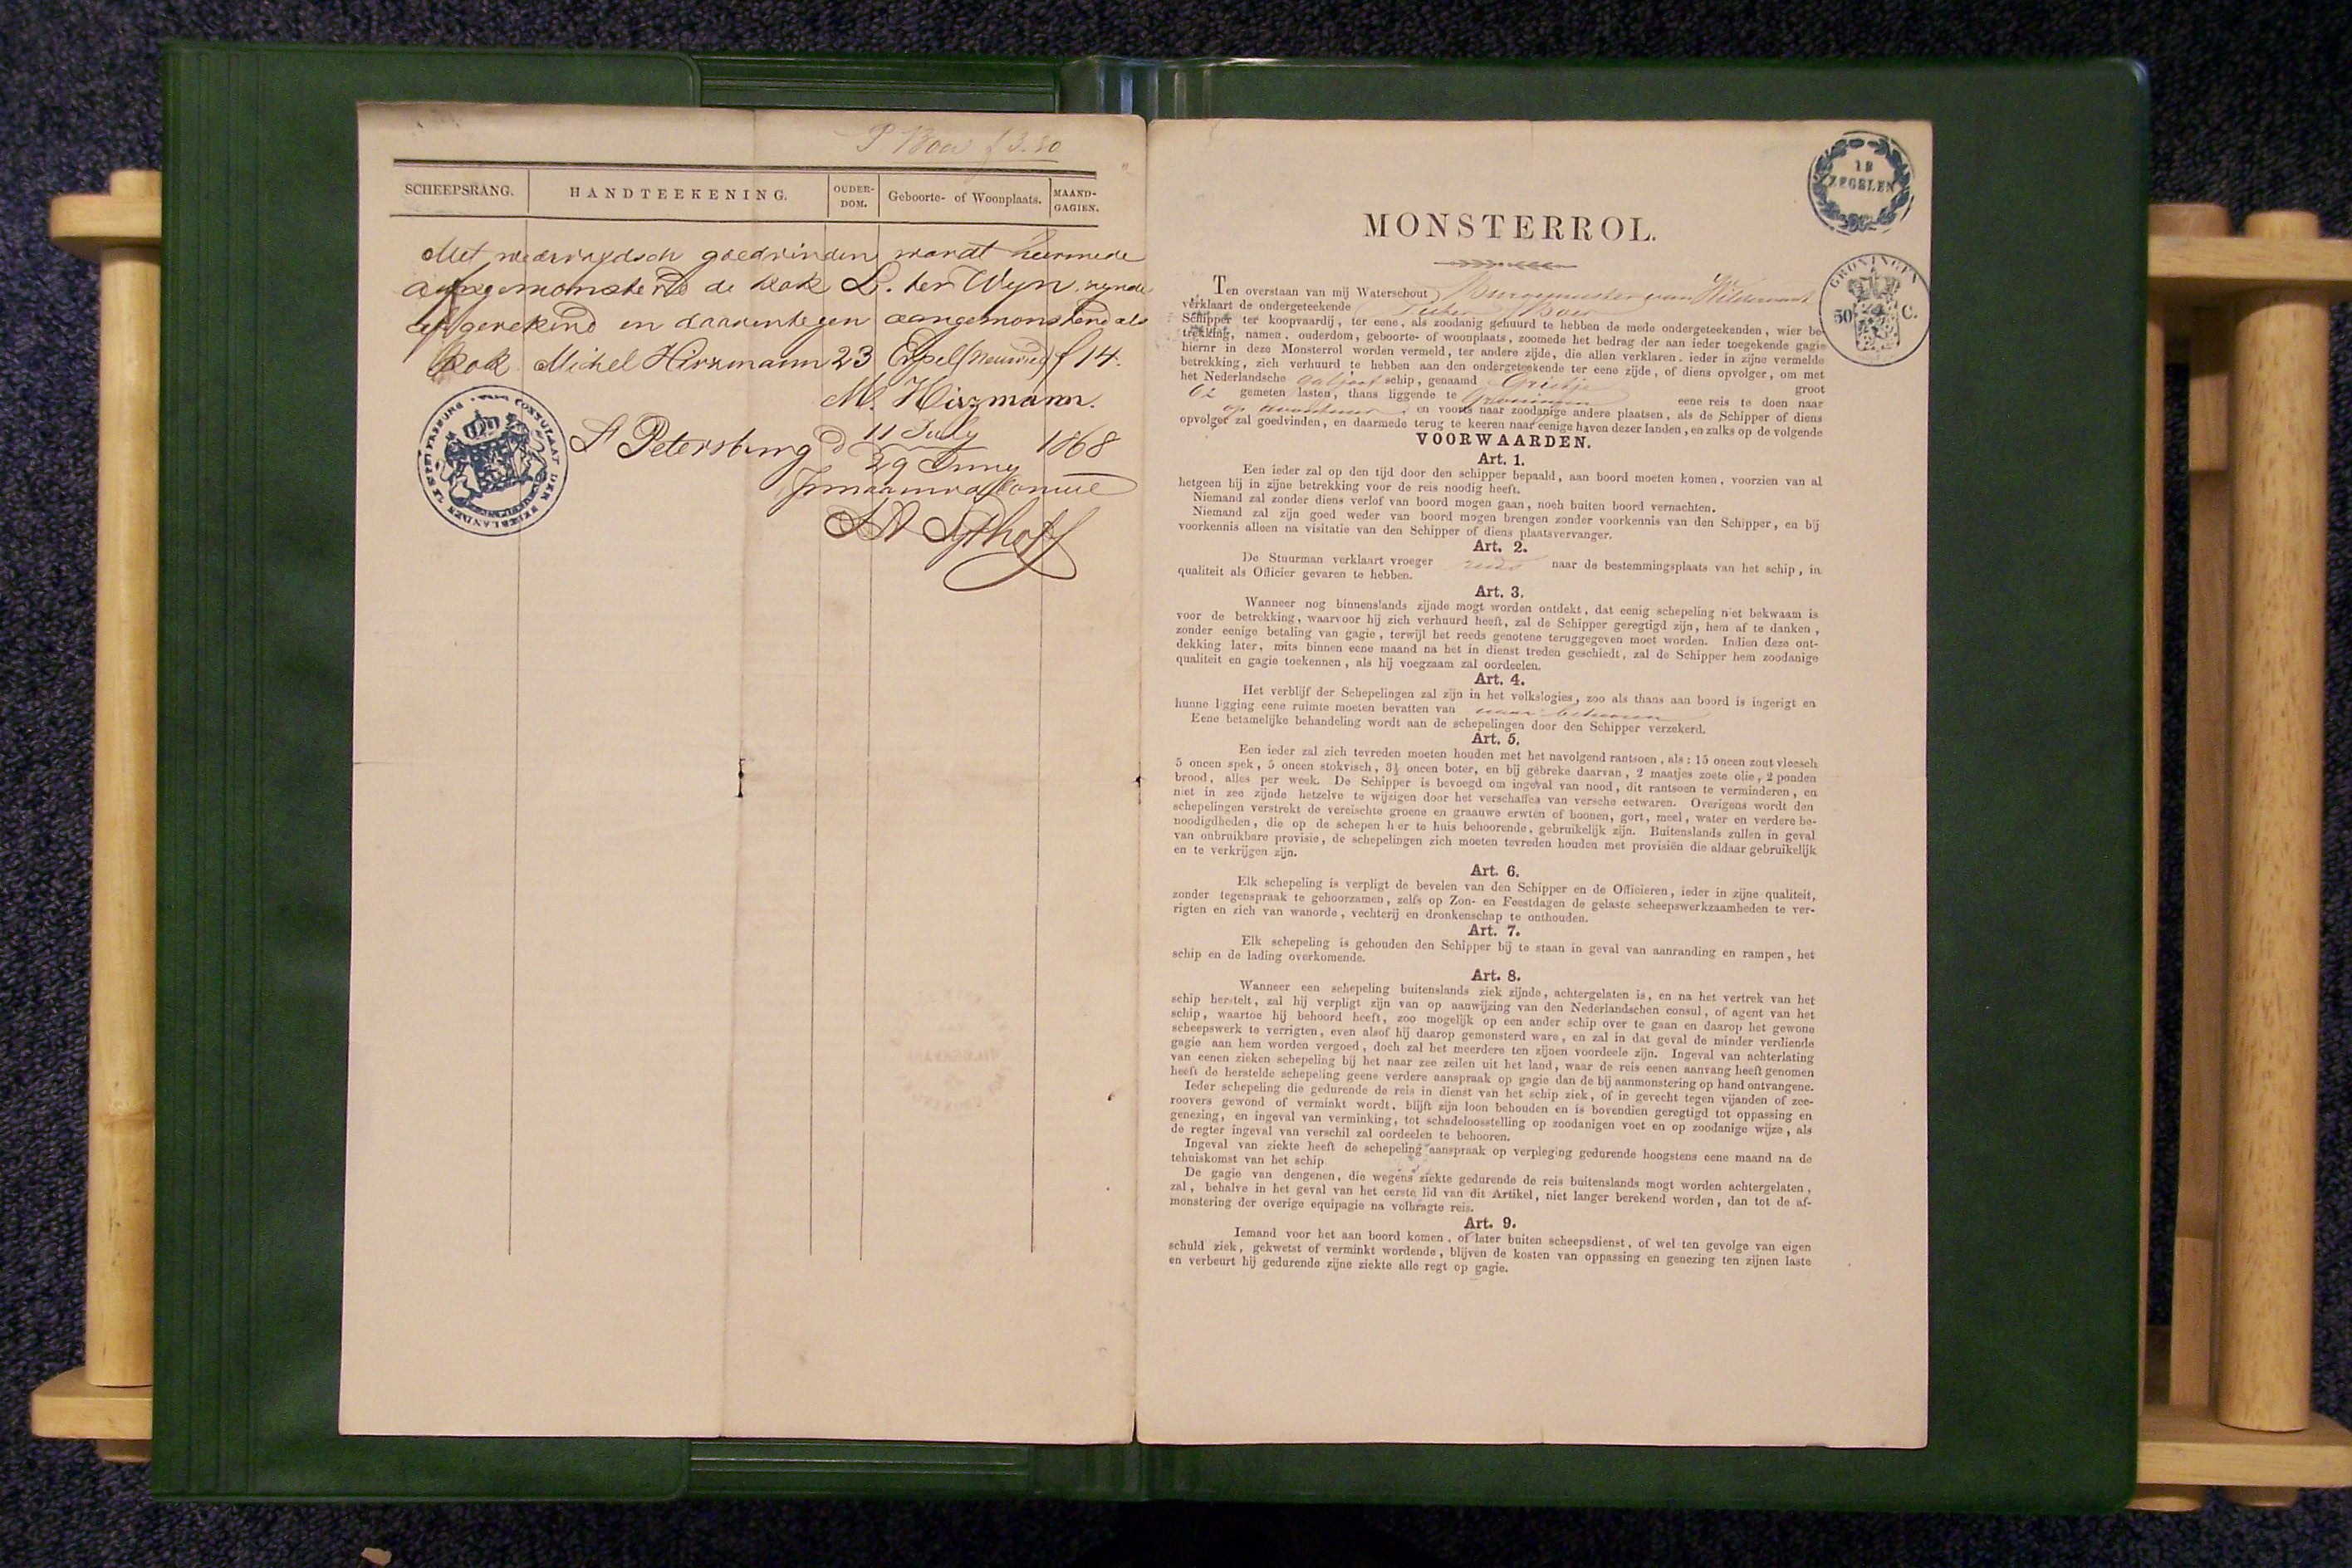 P Boer f 3.20
SCHEEPSRANG. HANDTEEKENING. OUDER-DOM. Geboorte- of Woonplaats. MAAND-GAGIEN.
Met wederzijdsch goedvinden wordt hiermede
afgemonsterd de kok L. ter Wyn, zynde
afgerekend en daarentegen aangemonsterd als
Kok Michel Hirzmann 23 Erpel (Neuwied) f 14.
M. Hirzmann.
St Petersburg d 11 July 1868
29 Juny
CONSULAAT DER NEDERLANDEN ST PETERSBURG
MONSTERROL.
18
ZEGELEN
GRONINGEN
50 C.
Ten overstaan van mij Waterschout Burgemeester van Wildervank
verklaart de ondergeteekende Pieter Boer
Schipper ter koopvaardij, ter eene, als zoodanig gehuurd te hebben de mede ondergeteekenden, wier be-
trekking, namen, ouderdom, geboorte- of woonplaats, zoomede het bedrag der aan ieder toegekende gagie
hierar in deze Monsterrol worden vermeld, ter andere zijde, die allen verklaren, ieder in zijne vermelde
betrekking, zich verhuurd te hebben aan den ondergeteekende ter eene zijde, of diens opvolger, om met
het Nederlandsche galjoot schip, genaamd Grietje groot
62 gemeten lasten, thans liggende te Groningen eene reis te doen naar
op avontuur en voorts naar zoodanige andere plaatsen, als de Schipper of diens
opvolger zal goedvinden, en daarmede terug te keeren naar eenige haven dezer landen, en zulks op de volgende
VOORWAARDEN.
Art. 1.
Een ieder zal op den tijd door den schipper bepaald, aan boord moeten komen, voorzien van al
hetgeen hij in zijne betrekking voor de reis noodig heeft.
Niemand zal zonder diens verlof van boord mogen gaan, noch buiten boord vernachten.
Niemand zal zijn goed weder van boord mogen brengen zonder voorkennis van den Schipper, en bij
voorkennis alleen na visitatie van den Schipper of diens plaatsvervanger.
Art. 2.
De Stuurman verklaart vroeger reeds naar de bestemmingsplaats van het schip, in
qualiteit als Officier gevaren te hebben.
Art. 3.
Wanneer nog binnenslands zijnde mogt worden ontdekt, dat eenig schepeling niet bekwaam is
voor de betrekking, waarvoor hij zich verhuurd heeft, zal de Schipper geregtigd zijn, hem af te danken,
zonder eenige betaling van gagie, terwijl het reeds genotene teruggegeven moet worden. Indien deze ont-
dekking later, mits binnen eene maand na het in dienst treden geschiedt, zal de Schipper hem zoodanige
qualiteit en gagie toekennen, als hij voegzaam zal oordeelen.
Art. 4.
Het verblijf der Schepelingen zal zijn in het volkslogies, zoo als thans aan boord is ingerigt en
hunne ligging eene ruimte moeten bevatten van naar behooren
Eene betamelijke behandeling wordt aan de schepelingen door den Schipper verzekerd.
Art. 5.
Een ieder zal zich tevreden moeten houden met het navolgend rantsoen, als: 15 oncen zout vleesch
5 oncen spek, 5 oncen stokvisch, 3½ oncen boter, en bij gebreke daarvan, 2 maatjes zoete olie, 2 ponden
brood, alles per week. De Schipper is bevoegd om ingeval van nood, dit rantsoen te verminderen, en
niet in zee zijnde hetzelve te wijzigen door het verschaffen van versche eetwaren. Overigens wordt den
schepelingen verstrekt de vereischte groene en graauwe erwten of boonen, gort, meel, water en verdere be-
noodigdheden, die op de schepen hier te huis behoorende, gebruikelijk zijn. Buitenslands zullen in geval
van onbruikbare provisie, de schepelingen zich moeten tevreden houden met provisiën die aldaar gebruikelijk
en te verkrijgen zijn.
Art. 6.
Elk schepeling is verpligt de bevelen van den Schipper en de Officieren, ieder in zijne qualiteit,
zonder tegenspraak te gehoorzamen, zelfs op Zon- en Feestdagen de gelaste scheepswerkzaamheden te ver-
rigten en zich van wanorde, vechterij en dronkenschap te onthouden.
Art. 7.
Elk schepeling is gehouden den Schipper bij te staan in geval van aanranding en rampen, het
schip en de lading overkomende.
Art. 8.
Wanneer een schepeling buitenslands ziek zijnde, achtergelaten is, en na het vertrek van het
schip herstelt, zal hij verpligt zijn van op aanwijzing van den Nederlandschen consul, of agent van het
schip, waartoe hij behoord heeft, zoo mogelijk op een ander schip over te gaan en daarop het gewone
scheepswerk te verrigten, even alsof hij daarop gemonsterd ware, en zal in dat geval de minder verdiende
gagie aan hem worden vergoed, doch zal het meerdere ten zijnen voordeele zijn. Ingeval van achterlating
van eenen zieken schepeling bij het naar zee zeilen uit het land, waar de reis eenen aanvang heeft genomen
heeft de herstelde schepeling geene verdere aanspraak op gagie dan de bij aanmonstering op hand ontvangene.
Ieder schepeling die gedurende de reis in dienst van het schip ziek, of in gevecht tegen vijanden of zee-
roovers gewond of verminkt wordt, blijft zijn loon behouden en is bovendien geregtigd tot oppassing en
genezing, en ingeval van verminking, tot schadeloosstelling op zoodanigen voet en op zoodanige wijze, als
de regter ingeval van verschil zal oordeelen te behooren.
Ingeval van ziekte heeft de schepeling aanspraak op verpleging gedurende hoogstens eene maand na de
tehuiskomst van het schip
De gagie van dengenen, die wegens ziekte gedurende de reis buitenslands mogt worden achtergelaten,
zal, behalve in het geval van het eerste lid van dit Artikel, niet langer berekend worden, dan tot de af-
monstering der overige equipagie na volbragte reis.
Art. 9.
Iemand voor het aan boord komen, of later buiten scheepsdienst, of wel ten gevolge van eigen
schuld ziek, gekwetst of verminkt wordende, blijven de kosten van oppassing en genezing ten zijnen laste
en verbeurt hij gedurende zijne ziekte alle regt op gagie.